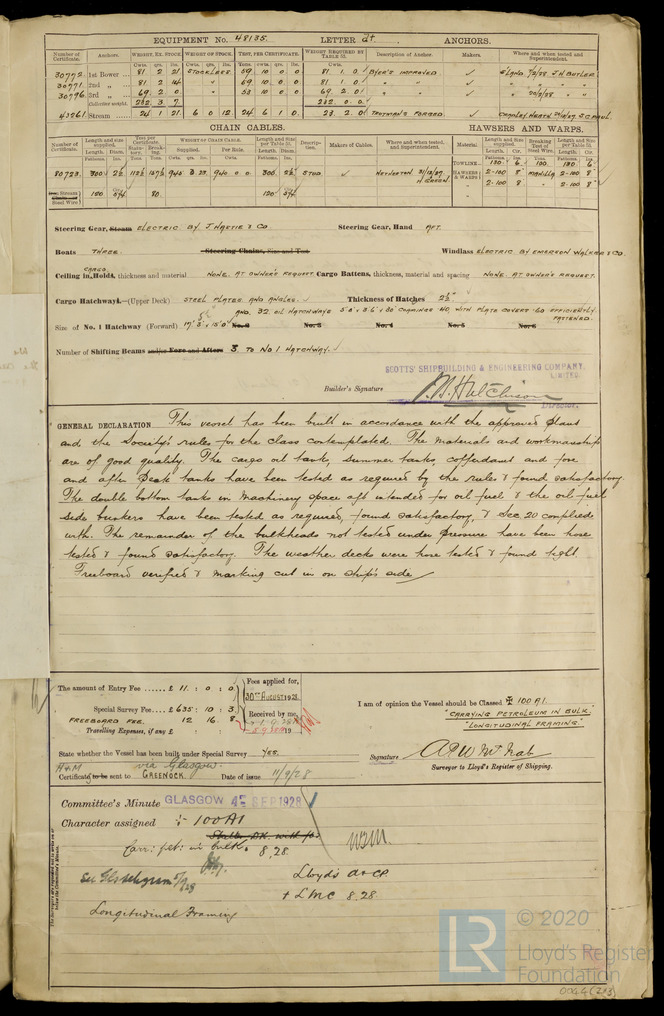 EQUIPMENT No. 48135. LETTER dt. ANCHORS.
Number of Certificate. Anchors. WEIGHT, EX. STOCK. WEIGHT OF STOCK. TEST, PER CERTIFICATE. WEIGHT REQUIRED BY TABLE 53. Description of Anchor. Makers. Where and when tested and Superintendent.
Cwts. qrs. lbs. Cwts. qrs. lbs. Tons. cwts. qrs. lbs. Cwts.
30772. 1st Bower 81 2 21 STOCKLESS 69 10 0 0 81. 1. 0. BYER'S IMPROVED ✓ S'LAND. 7/2/28 J.H. BUTLER.
30771. 2nd „ 81 2 14 " 69 10 0 0 81. 1. 0. " " " "
30796. 3rd „ 69 2 0 " 53 10 0 0 69. 2. 0. " " " 20/2/28 "
Collective weight. 232. 3. 7. 232. 0. 0.
43261 Stream 24 1 21 6 0 12 24 6 1 0. 23. 2. 0. TROTMAN'S FORGED. ✓ CRADLEY HEATH
CHAIN CABLES. HAWSERS AND WARPS.
Number of Certificate. Length and size supplied. Test per Certificate. WEIGHT OF CHAIN CABLE. Length and Size per Table 53. Description. Makers of Cables. Where and when tested, and Superintendent. Material. Length and Size supplied. Breaking Test of Steel Wire. Length and Size per Table 53.
80723. 300 2½ 940 940 0 0 300 2½ STUD ✓ NETHERTON 31/12/27 H. GREEN
TOWLINE 130 6 130 6
HAWSERS & WARPS 2-100 8" MANILLA 2-100 8"
" 2-100 8" " 2-100 8"
Stream Steel Wire 120 5¼ 50. 120 5¼
Steering Gear, Steam ELECTRIC BY J. HASTIE & CO. Steering Gear, Hand AFT.
Boats THREE. Steering Chains, Size and Test Windlass ELECTRIC BY EMERSON WALKER & CO.
Ceiling in CARGO Holds, thickness and material NONE. AT OWNER'S REQUEST. Cargo Battens, thickness, material and spacing NONE. AT OWNER'S REQUEST.
Cargo Hatchways.—(Upper Deck) STEEL PLATES AND ANGLES. ✓ Thickness of Hatches 2½"
AND. 32. OIL HATCHWAYS COAMINGS WITH PLATE COVERS EFFICIENTLY FASTENED.
Size of No. 1 Hatchway (Forward) No. 2 No. 3 No. 4 No. 5 No. 6
Number of Shifting Beams and/or Fore and Afters 3. TO No 1 HATCHWAY. ✓
SCOTTS' SHIPBUILDING & ENGINEERING COMPANY,
LIMITED.
Builder's Signature Hutchison
Director.
GENERAL DECLARATION This vessel has been built in accordance with the approved plans
and the Society's rules for the class contemplated. The materials and workmanship
are of good quality. The cargo oil tanks, summer tanks, cofferdams and fore
and after peak tanks have been tested as required by the rules & found satisfactory.
The double bottom tanks in machinery space aft intended for oil fuel & the oil fuel
side bunkers have been tested as required, found satisfactory, & Sec. 20 complied
with. The remainder of the bulkheads not tested under pressure have been hose
tested & found satisfactory. The weather decks were hose tested & found tight.
Freeboard verified & marking cut in on ship's side
The amount of Entry Fee ...... £ 11 : 0 : 0
Special Survey Fee £ 635 : 10 : 3
FREEBOARD FEE. 12 16. 8
Travelling Expenses, if any £ :
Fees applied for,
30TH AUGUST 1928.
Received by me,
I am of opinion the Vessel should be Classed ✠ 100 A1.
"CARRYING PETROLEUM IN BULK."
"LONGITUDINAL FRAMING."
State whether the Vessel has been built under Special Survey YES.
Signature
Surveyor to Lloyd's Register of Shipping.
via Glasgow.
Certificate to be sent to GREENOCK. Date of issue 11/9/28
Committee's Minute GLASGOW 4 SEP 1928
Character assigned + 100A1
Shelter Dk. with fb.
Carr: pet: in bulk. 8,28.
Longitudinal Framing
Lloyd's A & CP.
+ LMC 8,28.
LR
© 2020
Lloyd's Register
Foundation
0044 (2/3)